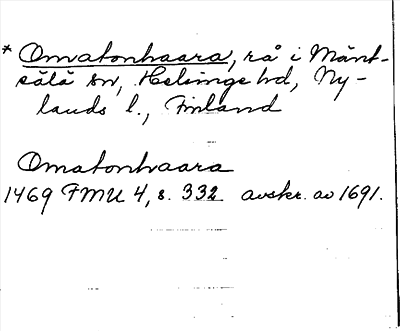 * Omatonhaara, rå i Mänt-
sälä sn, Helsinge hd, Ny-
lands l., Finland
Omatonhaara
1469 FMU 4, s. 332 avskr. av 1691.